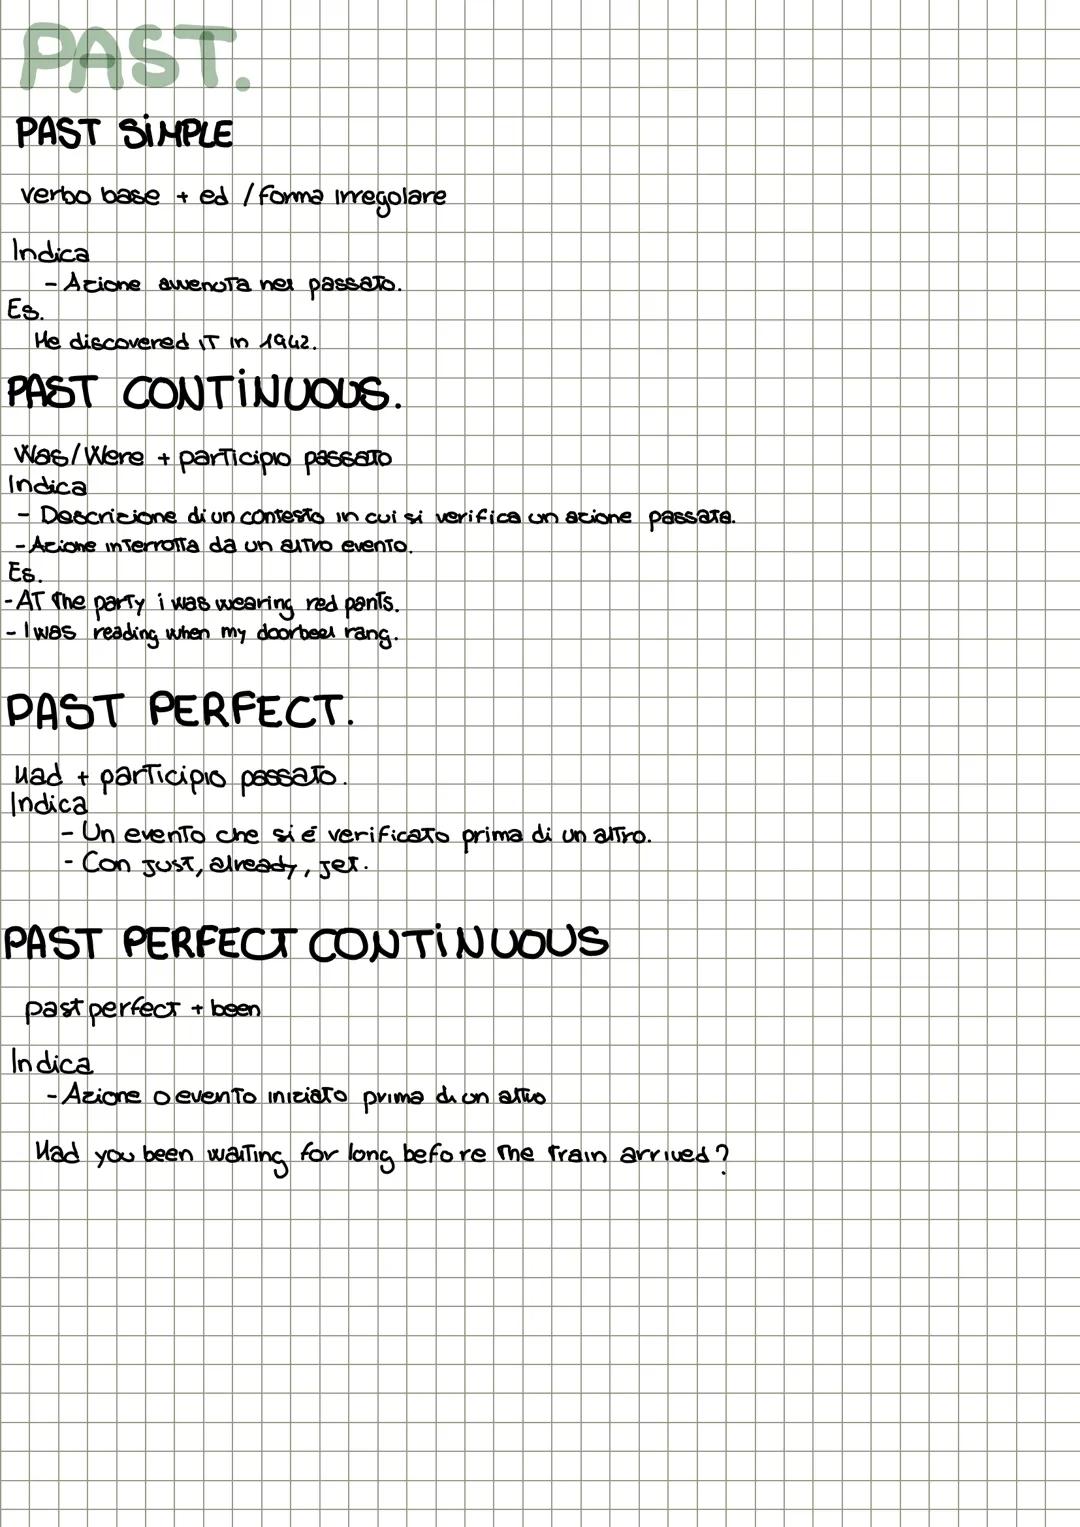 PAST.
PAST SiMPLE
verbo base + ed / forma irregolare
Indica
- Azione avvenuta nel passato.
Es.
He discovered iT in 1942.
PAST CONTiNUOUS.
Was/Were + participio passato
Indica
- Descrizione di un contesto in cui si verifica un azione passata.
- Azione interrotta da un altro evento.
Es.
- AT the party i was wearing red pants.
- I was reading when my doorbell rang.
PAST PERFECT.
Had + participio passato.
Indica
- Un evento che si é verificato prima di un altro.
- Con just, already, jet.
PAST PERFECT CONTiNUOUS
past perfect + been
Indica
- Azione o evento iniziato prima di un altro
Had you been waiting for long before the train arrived?